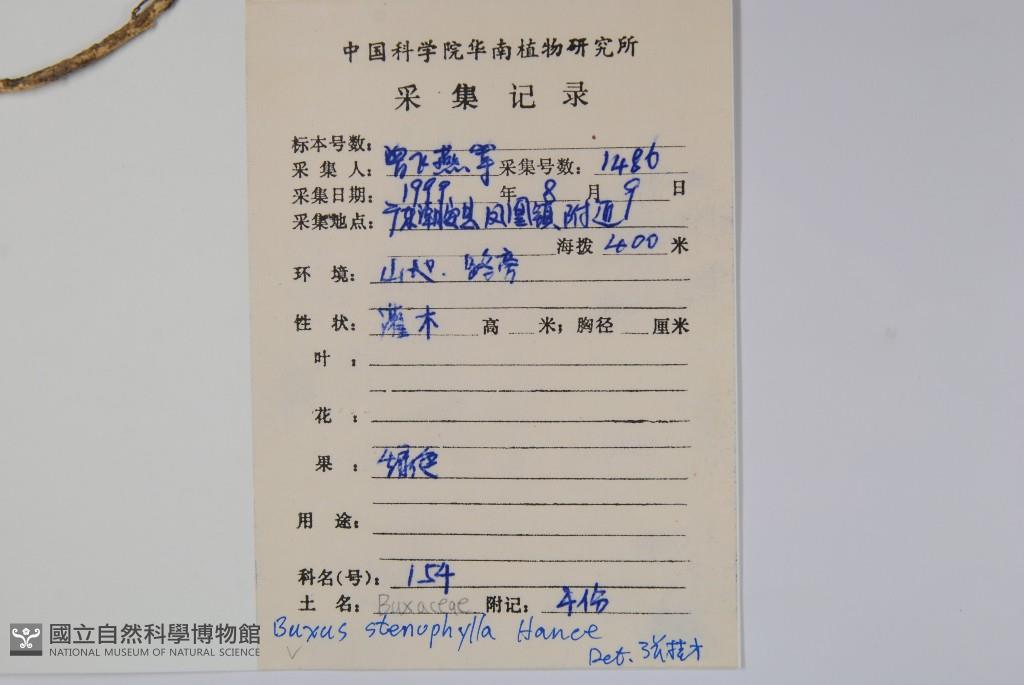 中国科学院华南植物研究所
采集记录
标本号数:
采集人: 曾飞燕等 采集号数: 1486
采集日期: 1999 年 8 月 9 日
采集地点: 广东潮安县凤凰镇附近
海拨 400 米
环境: 山地. 路旁
性状: 灌木 高 米; 胸径 厘米
叶:
花:
果: 绿色
用途:
科名(号): 154
土名: Buxaceae 附记: 4份
Buxus stenophylla Hance
Det. 张桂才
國立自然科學博物館
NATIONAL MUSEUM OF NATURAL SCIENCE